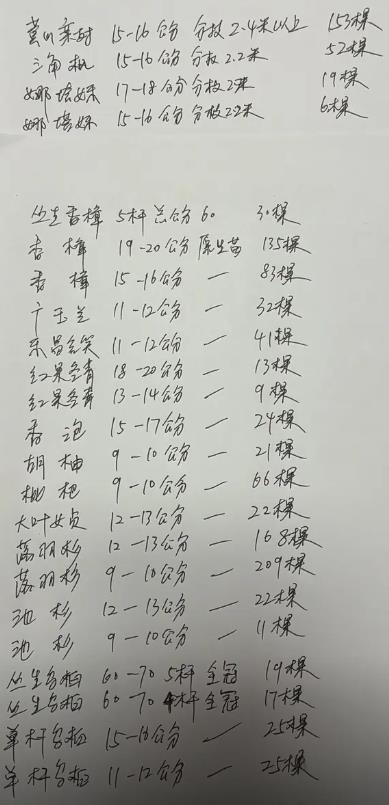 黄山栾树 15-16公分 分枝2.4米以上 153棵
三角枫 15-16公分 分枝2.2米 52棵
娜塔栎 17-18公分 分枝2米 19棵
娜塔栎 15-16公分 分枝2.2米 6棵
丛生香樟 5杆 总公分60 30棵
香樟 19-20公分 原生苗 135棵
香樟 15-16公分 — 83棵
广玉兰 11-12公分 — 32棵
乐昌含笑 11-12公分 — 41棵
红果冬青 18-20公分 — 13棵
红果冬青 13-14公分 — 9棵
香泡 15-17公分 — 24棵
胡柚 9-10公分 — 21棵
枇杷 9-10公分 — 66棵
大叶女贞 12-13公分 — 22棵
落羽杉 12-13公分 — 168棵
落羽杉 9-10公分 — 209棵
池杉 12-13公分 — 22棵
池杉 9-10公分 — 11棵
丛生乌桕 60-70 5杆 全冠 19棵
丛生乌桕 60-70 4杆 全冠 17棵
单杆乌桕 15-16公分 — 25棵
单杆乌桕 11-12公分 — 25棵